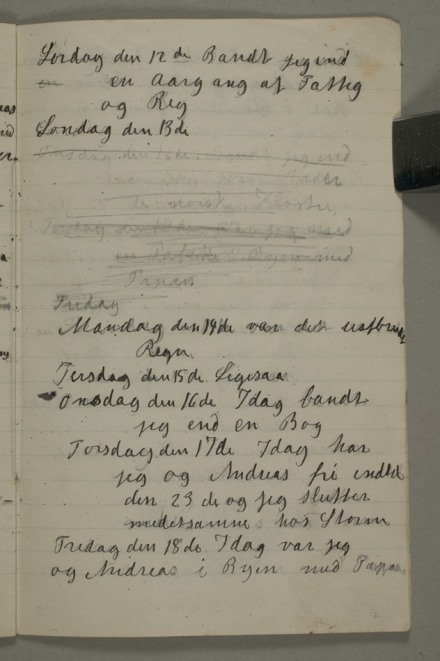 Lördag den 12 de Bandt jeg ind
en Aargang af Fattig
og Rig
Søndag den 13de
Onsdag den 16de bandt jeg ind
Torsdag den
en i Byen med
Papa
Fredag
Mandag den 14de var det ustbrudt
Regn
Tirsdag den 15de Ligesaa
Onsdag den 16de Idag bandt
jeg end en Bog
Torsdag den 17de Idag har
jeg og Andreas fri indtil
den 23 de og jeg slutter
medetsamme hos Storm
Fredag den 18de Idag var jeg
og Andreas i Byen med Papa